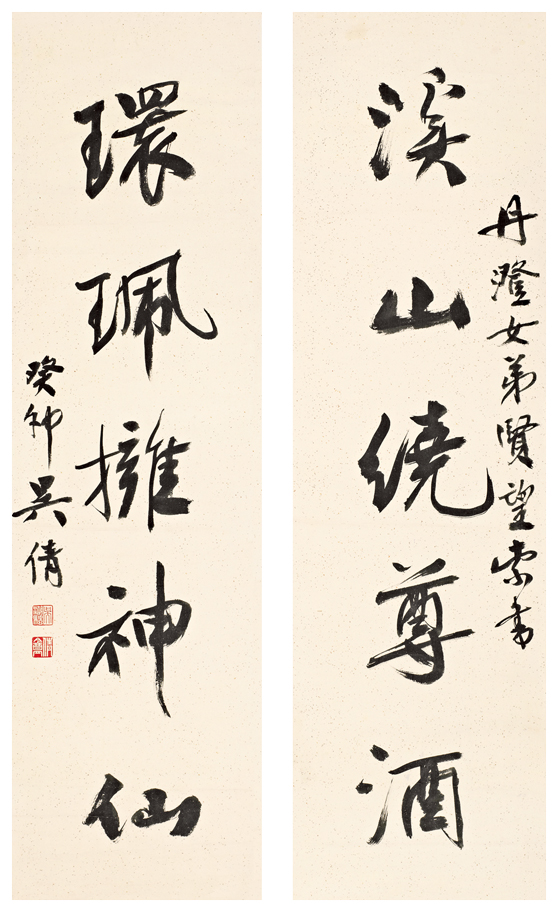 丹澄女弟賢望索書
溪山繞尊酒
環珮擁神仙
癸卯吳倩